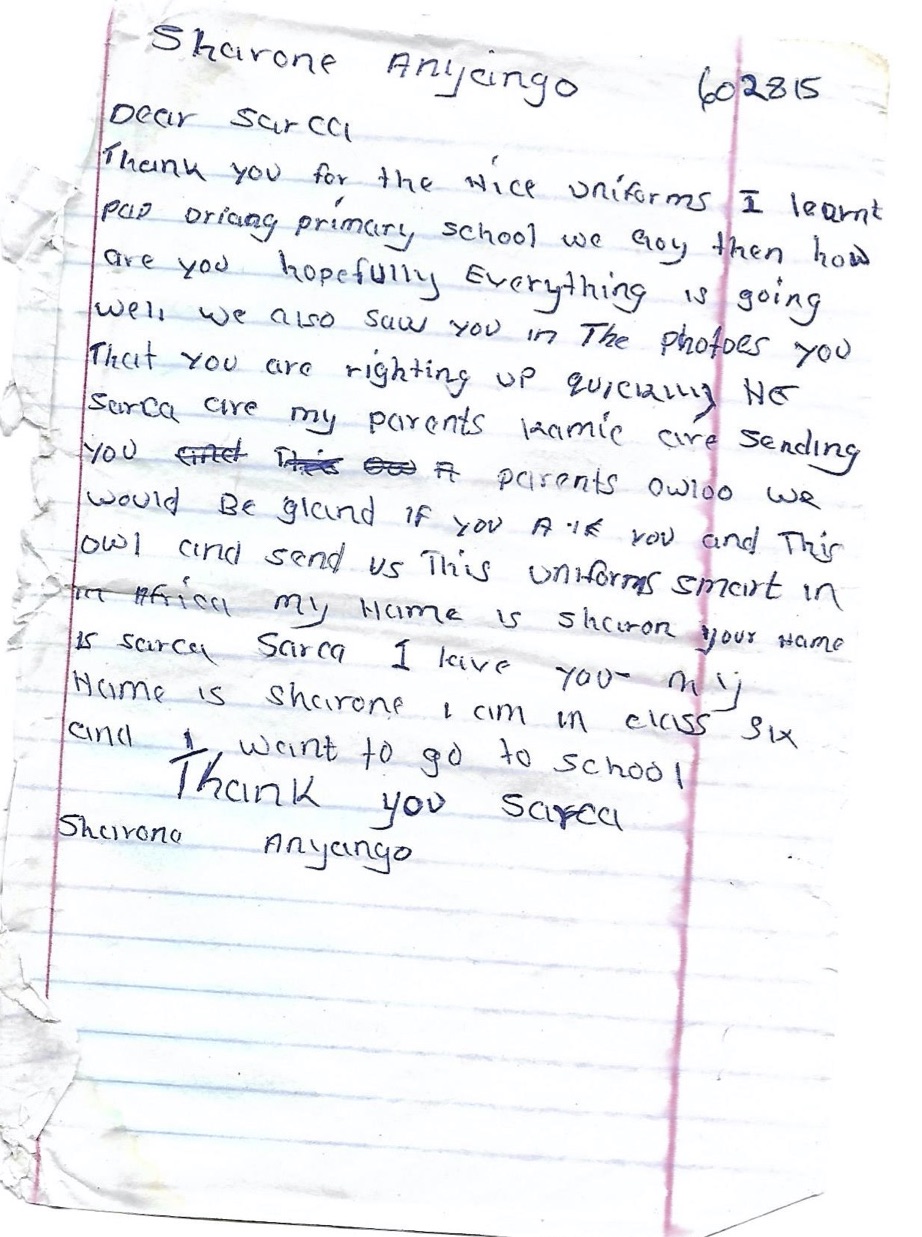 Sharone Anyango 602815
Dear Sarca
Thank you for the Nice uniforms I learnt
pap oriang primary school we goy then how
are you hopefully Everything is going
well we also saw you in The photoes you
That you are righting up quickly
Sarca are my parents are sending
you parents owloo we
would Be gland if you you and This
owl and send us This uniforms smart in
in Africa my Name is sharon your Name
is sarca Sarca I you my
Name is sharone i am in class six
and I want to go to school
Thank you sarca
Sharona Anyango